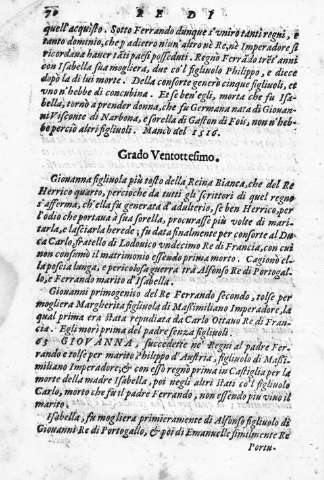 70 RE DI
quell'acquisto. Sotto Ferrando dunque s'unirò tanti regni, e
tanto dominio, che p adietro niun'altro nè Re, nè Imperadore si
ricordana hauer tãti paesi posseduti. Regnò Ferrãdo trẽt'anni
con Isabella sua mogliera, due co'l figliuolo Philippo, e diece
dopò la di lui morte. Della consorte generò cinque figliuoli, et
vno n'hebbe di concubina. Et se bẽn'egli, morta che fu Isa-
bella, tornò a prender donna, che fu Germana nata di Giouan-
ni Visconte di Narbona, e sorella di Gaston di Fois, non n'heb-
be perciò altri figliuoli. Mancò del 1516.
Grado Ventottesimo.
Giouanna figliuola più tosto della Reina Bianca, che del Re
Herrico quarto, percioche da tutti gli scrittori di quel regno
s'afferma, ch'ella fu generata d'adulterio, se ben Herrico, per
l'odio che portaua à sua sorella, procurasse più volte di mari-
tarla, e lasciarla herede; fu data finalmente per consorte al Du
ca Carlo, fratello di Lodouico vndecimo Re di Francia, con cui
non consumò il matrimonio essendo prima morto. Cagionò el-
la poscia lunga, e pericolosa guerra trà Alfonso Re di Portogal-
lo, e Ferrando marito d'Isabella.
Giouanni primogenito del Re Ferrando secondo, tolse per
mogliera Margherita figliuola di Massimiliano Imperadore, la
qual prima era stata repudiata da Carlo Ottauo Re di Fran-
cia. Egli morì prima del padre senza figliuoli.
63 GIOVANNA, succedette ne' Regni al padre Fer-
rando e tolse per marito Philippo d'Austria, figliuolo di Massi-
miliano Imperadore, & con esso regnò prima in Castiglia per la
morte della madre Isabella, poi negli altri stati co'l figliuolo
Carlo, morto che fu il padre Ferrando, non essendo piu viuo il
marito.
Isabella, fu mogliera primieramente di Alfonso figliuolo di
Giouanni Re di Portogallo, & pòi di Emanuelle similmente Re
Portu-